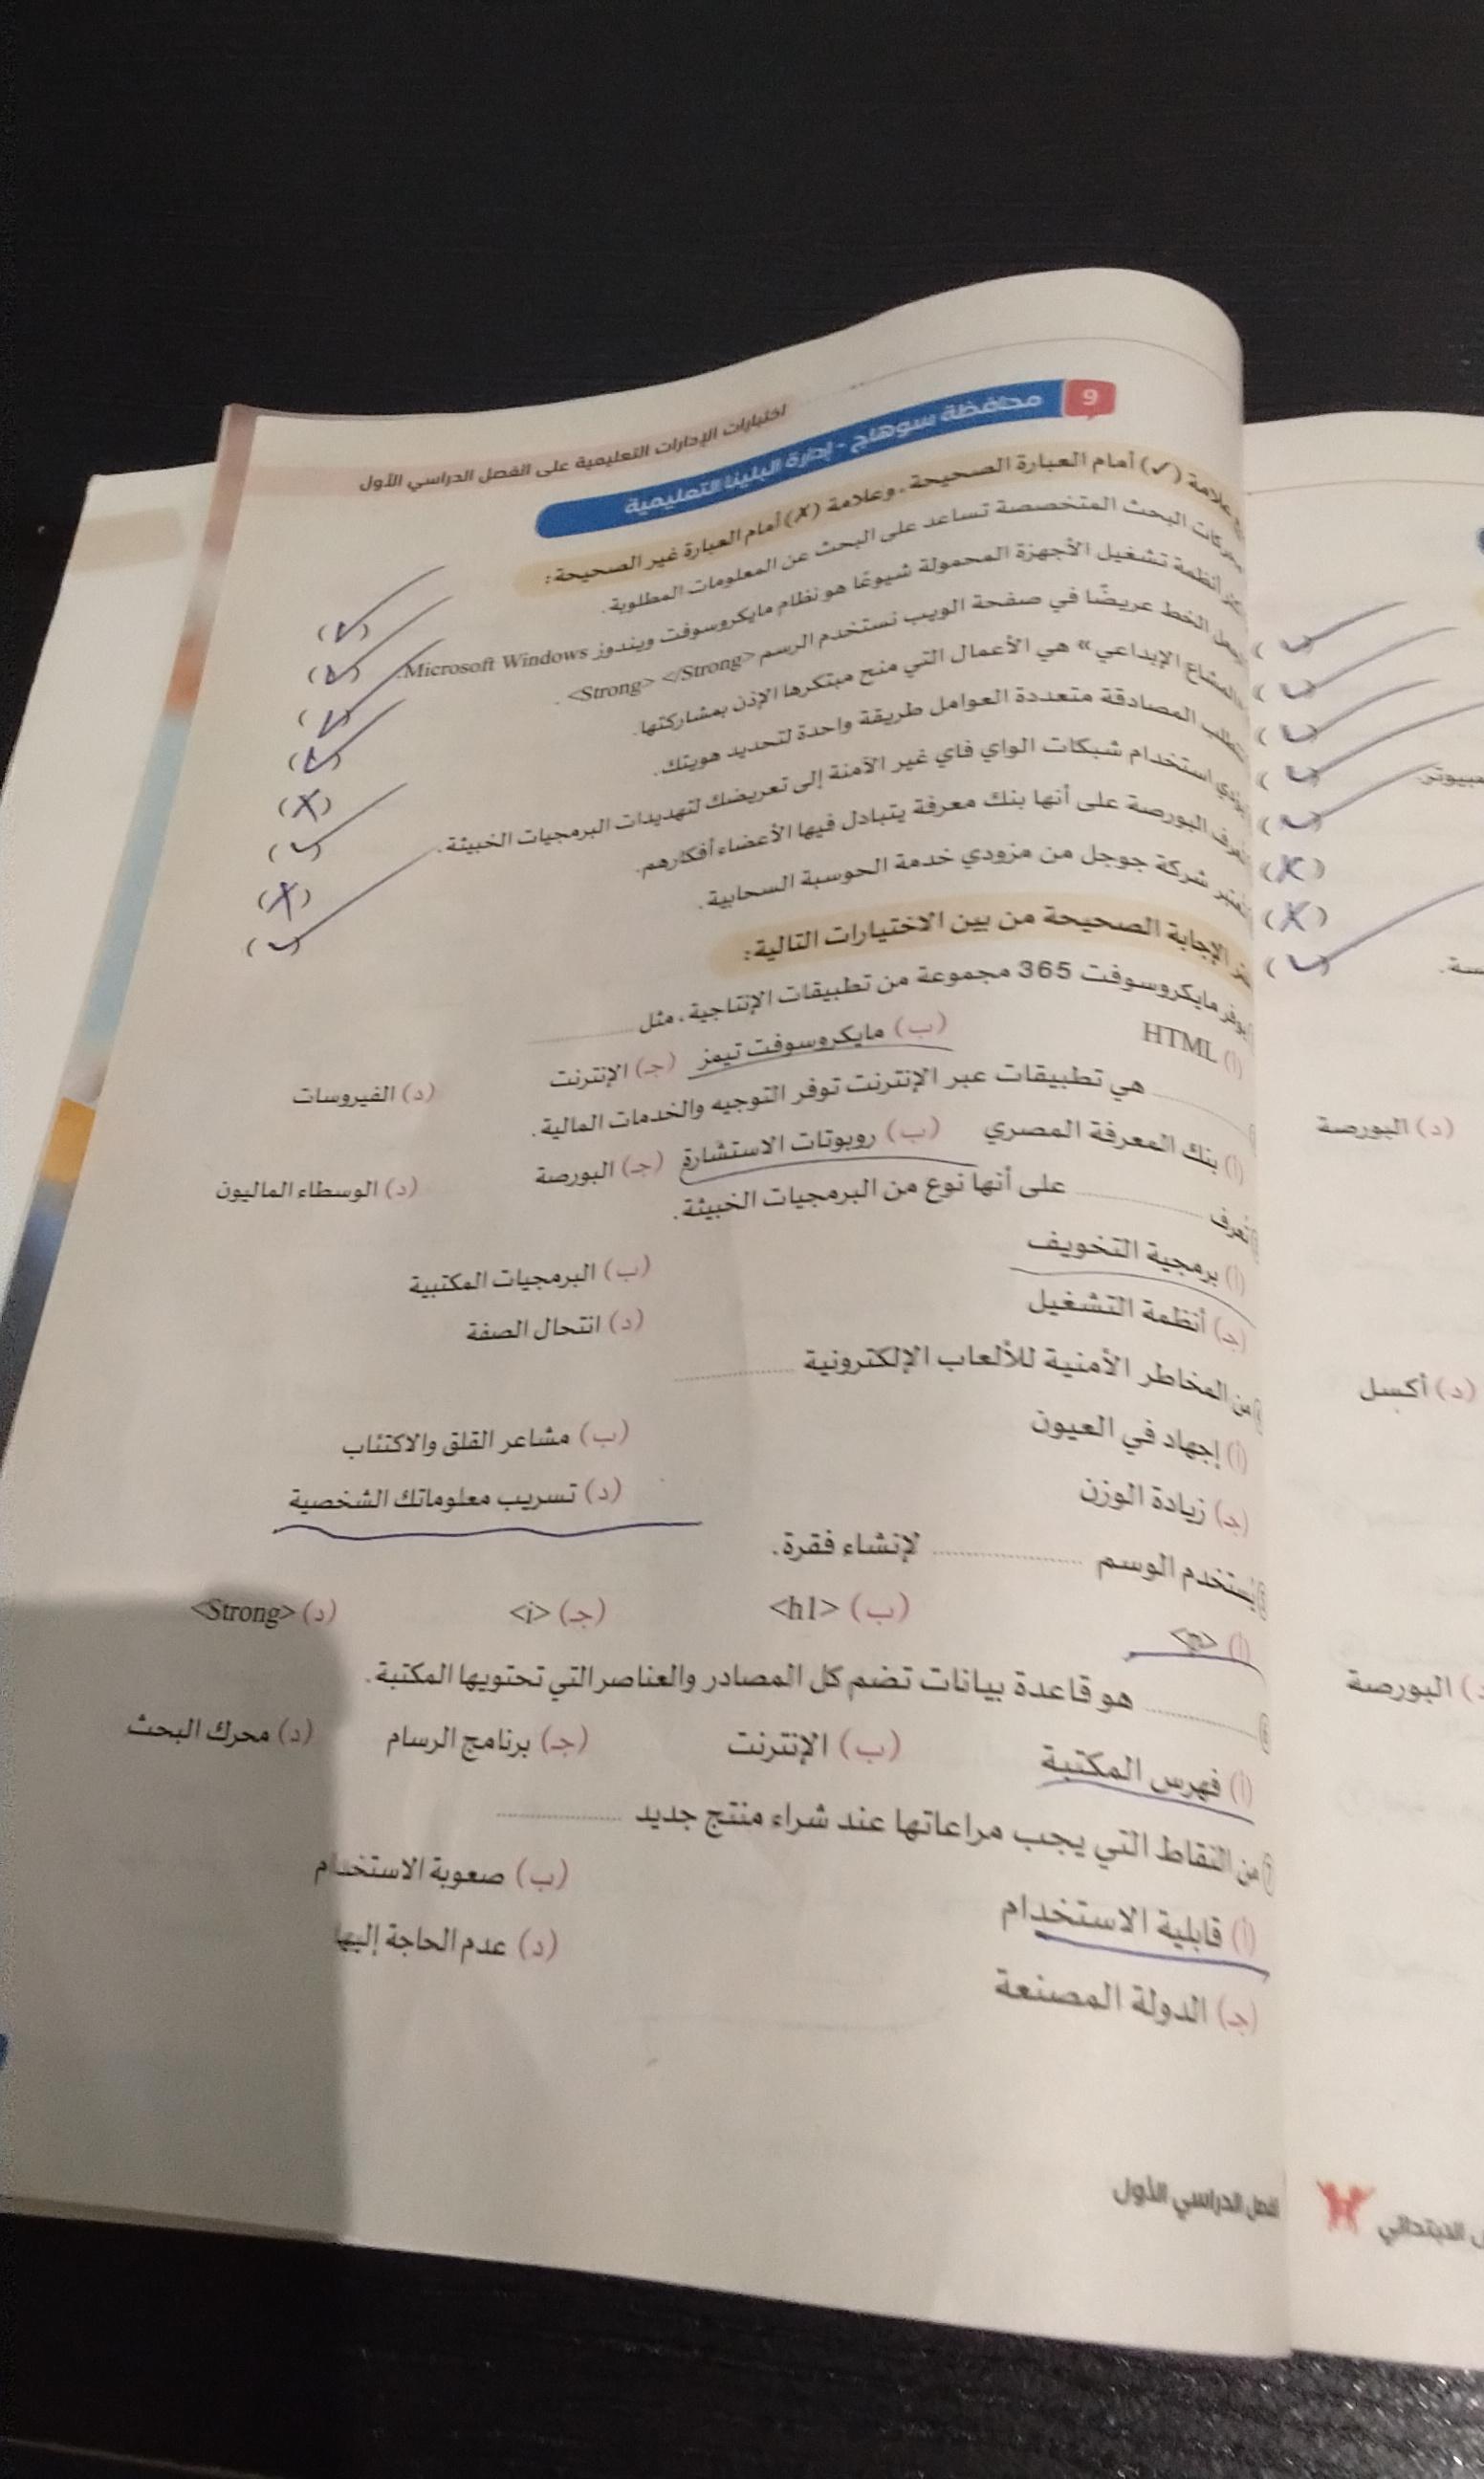 اختبارات الإدارات التعليمية على الفصل الدراسي الأول
9 محافظة سوهاج - إدارة البلينا التعليمية
علامة (✓) أمام العبارة الصحيحة، وعلامة (✗) أمام العبارة غير الصحيحة:
محركات البحث المتخصصة تساعد على البحث عن المعلومات المطلوبة. (✓)
أنظمة تشغيل الأجهزة المحمولة شيوعًا هو نظام مايكروسوفت ويندوز Microsoft Windows. (✓)
لجعل الخط عريضًا في صفحة الويب نستخدم الرسم <Strong> </Strong>. (✓)
«المشاع الإبداعي» هي الأعمال التي منح مبتكرها الإذن بمشاركتها. (✓)
تتطلب المصادقة متعددة العوامل طريقة واحدة لتحديد هويتك. (✗)
يؤدي استخدام شبكات الواي فاي غير الآمنة إلى تعريضك لتهديدات البرمجيات الخبيثة. (✓)
تعرف البورصة على أنها بنك معرفة يتبادل فيها الأعضاء أفكارهم. (✗)
تعتبر شركة جوجل من مزودي خدمة الحوسبة السحابية. (✓)
الإجابة الصحيحة من بين الاختيارات التالية:
يوفر مايكروسوفت 365 مجموعة من تطبيقات الإنتاجية، مثل ............
(أ) HTML (ب) مايكروسوفت تيمز (جـ) الإنترنت (د) الفيروسات
............ هي تطبيقات عبر الإنترنت توفر التوجيه والخدمات المالية.
(أ) بنك المعرفة المصري (ب) روبوتات الاستشارة (جـ) البورصة (د) الوسطاء الماليون
تعرف ............ على أنها نوع من البرمجيات الخبيثة.
(أ) برمجية التخويف (ب) البرمجيات المكتبية
(جـ) أنظمة التشغيل (د) انتحال الصفة
من المخاطر الأمنية للألعاب الإلكترونية ............
(أ) إجهاد في العيون (ب) مشاعر القلق والاكتئاب
(جـ) زيادة الوزن (د) تسريب معلوماتك الشخصية
يستخدم الوسم ............ لإنشاء فقرة.
(أ) <p> (ب) <h1> (جـ) <i> (د) <Strong>
............ هو قاعدة بيانات تضم كل المصادر والعناصر التي تحتويها المكتبة.
(أ) فهرس المكتبة (ب) الإنترنت (جـ) برنامج الرسام (د) محرك البحث
7 من النقاط التي يجب مراعاتها عند شراء منتج جديد ............
(أ) قابلية الاستخدام (ب) صعوبة الاستخدام
(جـ) الدولة المصنعة (د) عدم الحاجة إليها
الفصل الدراسي الأول
(✓)
(✓)
(✓)
(✓)
(✓)
(✗)
(✗)
(✓)
(د) البورصة
(د) أكسل
البورصة
الابتدائي